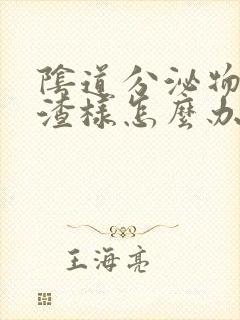 陰道分泌物
渣樣怎麼办
王海亮